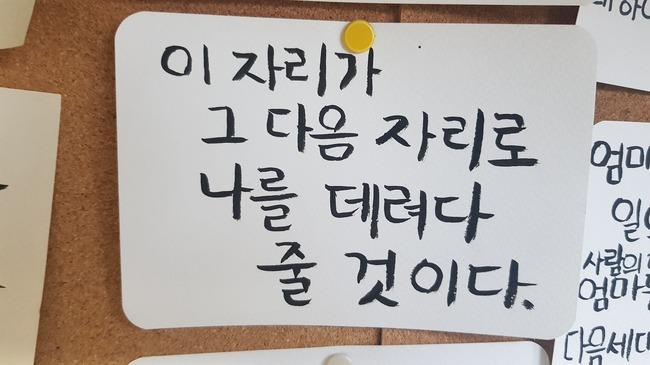 이 자리가
그 다음 자리로
나를 데려다
줄 것이다.
엄마
사람의
다음세대